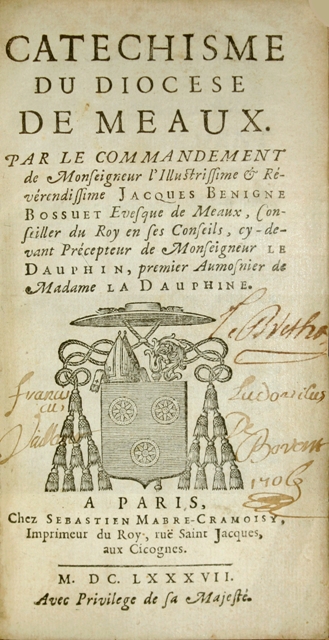 CATECHISME
DU DIOCESE
DE MEAUX.
PAR LE COMMANDEMENT
de Monseigneur l'Illustrissime & Ré-
vérendissime JACQUES BENIGNE
BOSSUET Evesque de Meaux, Con-
seiller du Roy en ses Conseils, cy-de-
vant Précepteur de Monseigneur LE
DAUPHIN, premier Aumosnier de
Madame LA DAUPHINE.
Francis
cus
Ludovicus
De
1706
A PARIS,
Chez SEBASTIEN MABRE-CRAMOISY,
Imprimeur du Roy, ruë Saint Jacques,
aux Cicognes.
M. DC. LXXXVII.
Avec Privilege de sa Majesté.